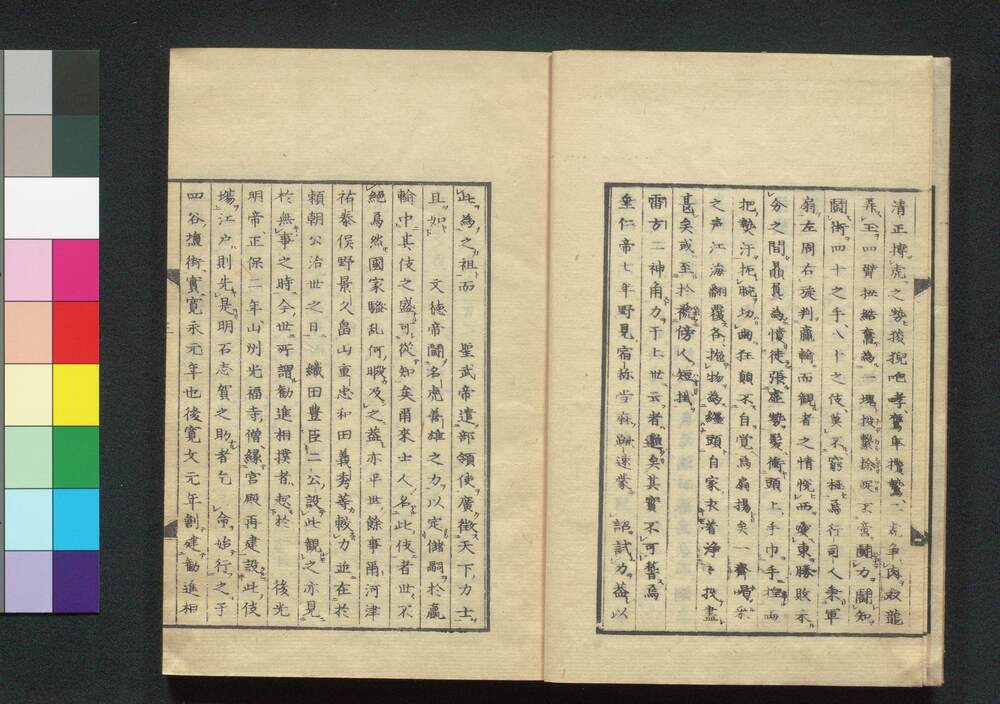 清正搏虎之勢後猊吧哮奮年攫鷙二虎爭肉双龍
弄玉四臂扭結奮為一塊投繫捻㨄不啻鬪力鬪知
鬪術四十之手八十之伎莫不窮極焉行司人秉軍
扇左周右旋判贏輸而觀者之情悅西愛東勝敗未
分之間贔負為憤徒張虛勢髮衝頭上手巾手捏
把熱汗扼腕切齒狂顛不自覚焉扇揚矣一齊喝采
之声江海翻覆各抛物為纏頭自家衣着淨々投盡
甚矣或至於褫傍人短掛
雷方二神角力于上世云者邈矣其實不可誓焉
垂仁帝七年野見宿祢當麻蹶速蒙 詔試力蓋以
此為之祖而 聖武帝遣部領使廣徴天下力士
且如 文徳帝鬪名虎善雄之力以定儲嗣於贏
輸中其伎之盛可從知矣爾來士人名此伎者世不
絕焉然國家騷乱何暇及之蓋亦平世餘事爾河津
祐泰俣野景久畠山重忠和田義秀等較力迩在於
頼朝公治世之日 織田豊臣二公設此觀之亦見
於無事之時今世所謂勧進相撲者起於 後光
明帝正保二年山州光福寺僧縁宮殿再建設此伎
場江戸則先是明石志賀之助者乞 命始行之于
四谷塩街實寛永元年也後寛文元年創建勧進相